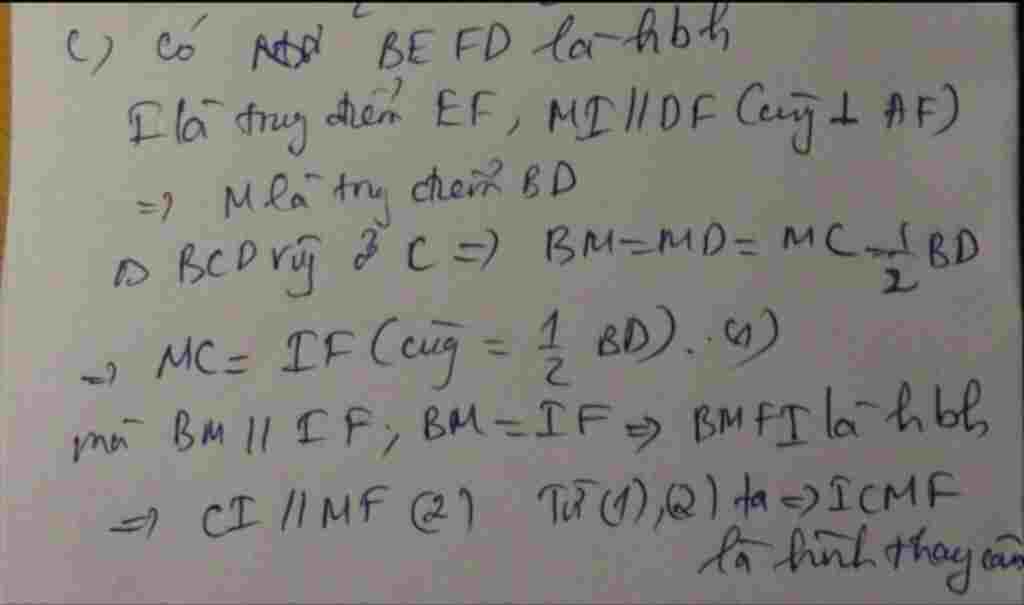 c) Có BEFD là hbh
I là trug điểm EF, MI // DF (cùg ⊥ AF)
=> M là trg điểm BD
Δ BCD vuôg ở C => BM = MD = MC = 1/2 BD
=> MC = IF (cùg = 1/2 BD). (1)
mà BM // IF, BM = IF => BMFI là hbh
=> CI // MF (2) Từ (1), (2) ta => ICMF
là hình thag cân